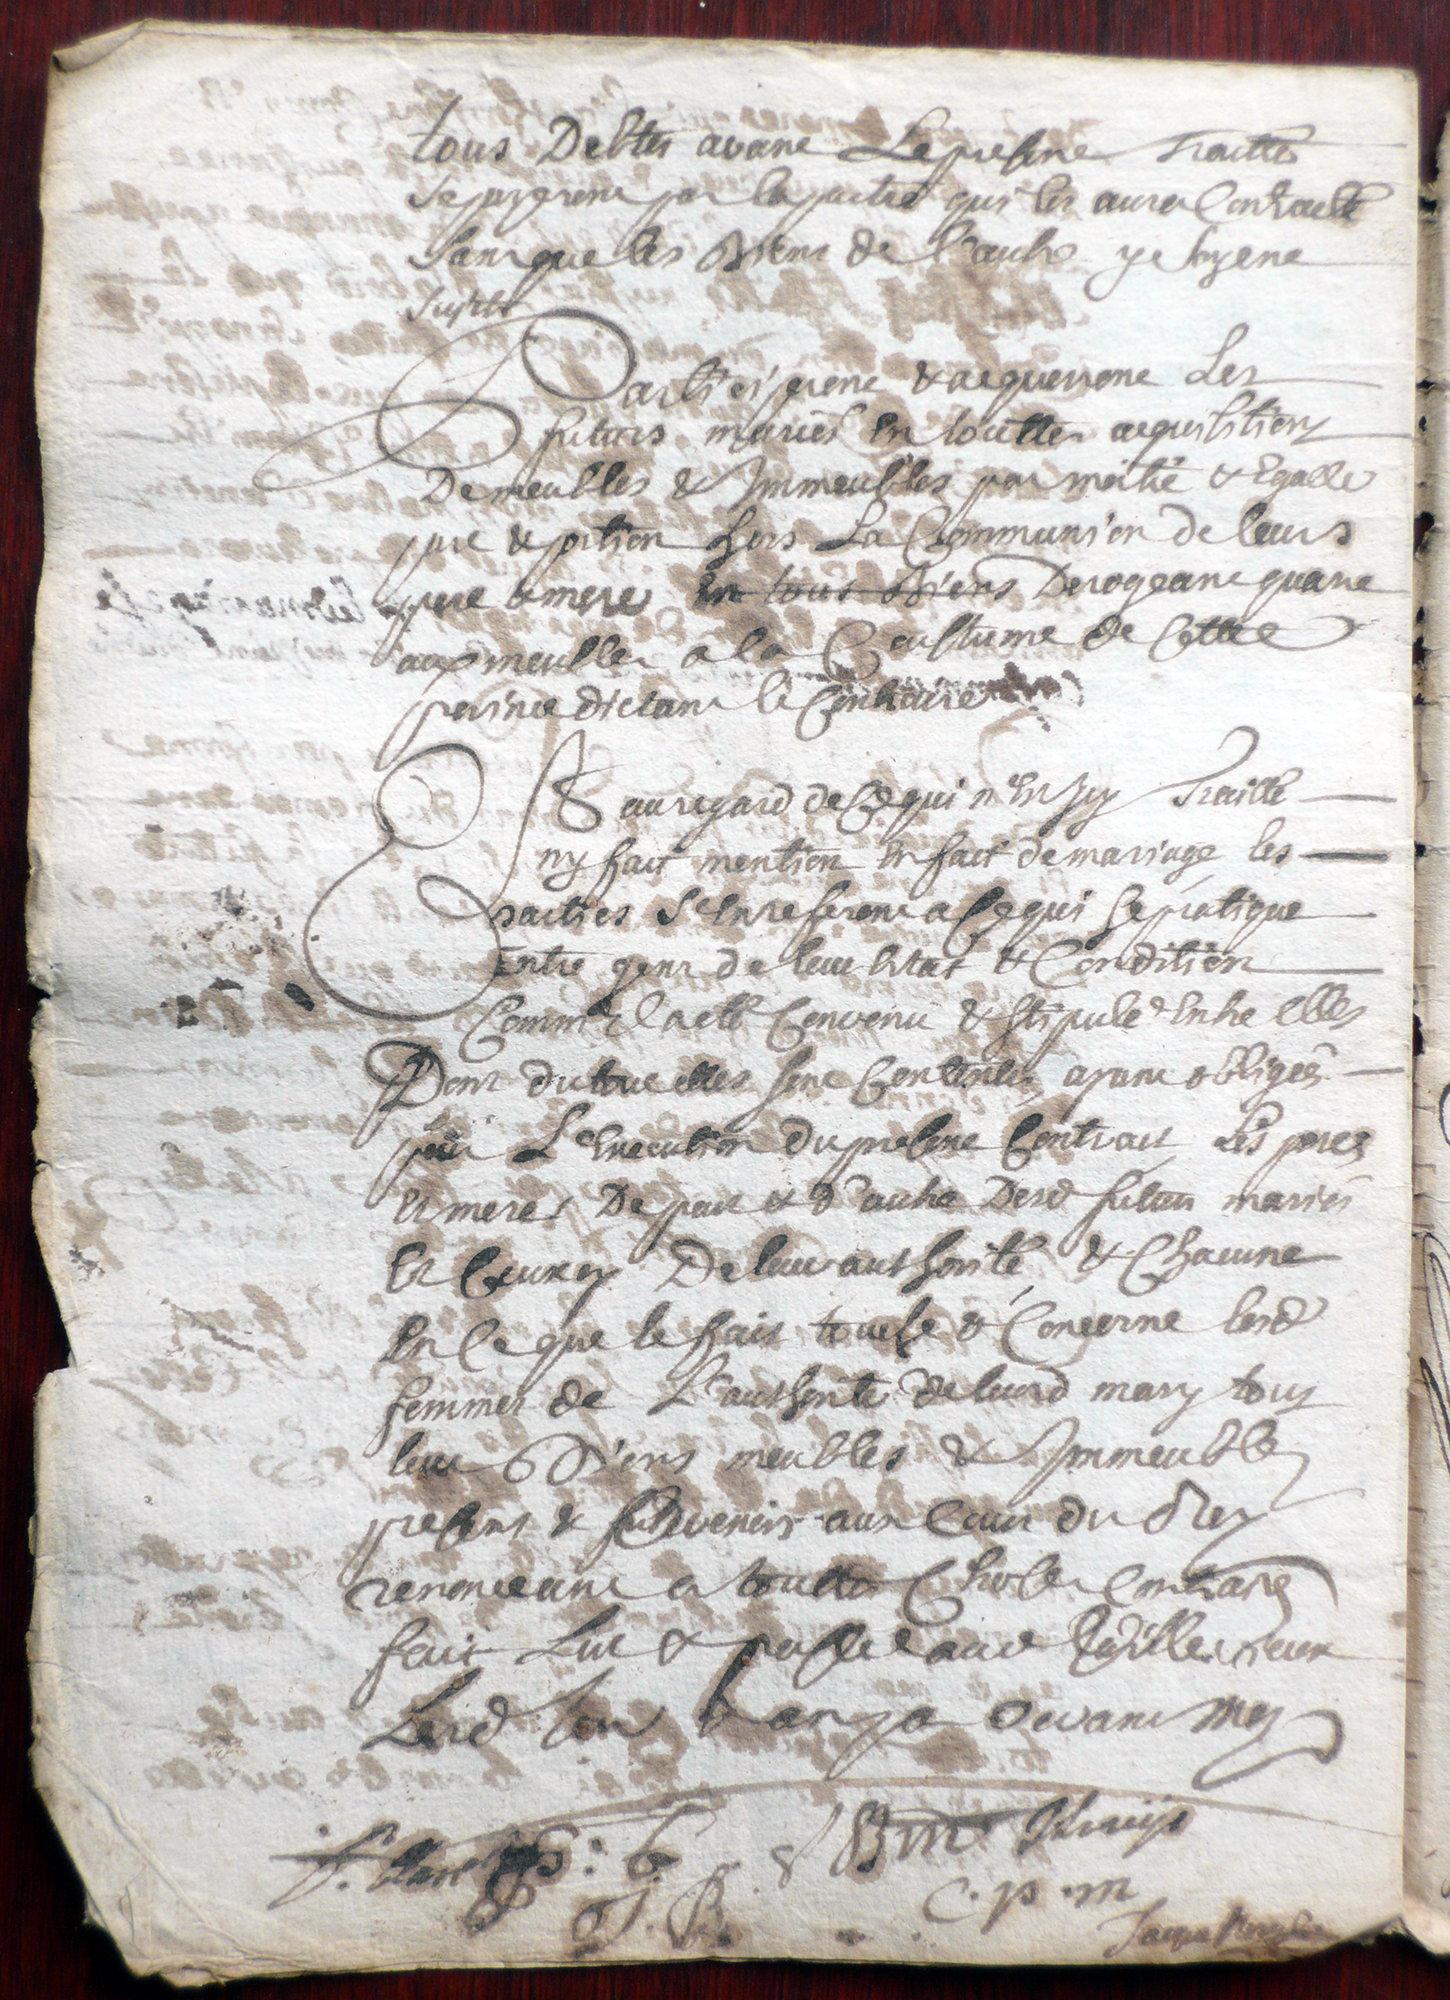 tous Debtes avant Le present Traitté
se payeront par la partie qui les aura Contracté
sans que les Biens de l'autre y soyent
sujets
Participeront & acquerront Les
futurs mariés en touttes acquisitions
De meubles & Immeubles par moitié & Egalle
part & portion hors La Communion de leurs
pere & mere en tous Biens Derogeant quant
aux meubles a la Coustume de Cette
province dictant le Contraire
Et au regard de Ce qui n'est icy Traitté
ny fait mention en fait de mariage les
parties s'en referent a Ce qui se pratique
Entre gens de leur Estat & Condition
Comm' il a esté Convenu & stipulé Entre elles
Dont du tout elles sont Contentes ayant obligés
pour L'execution du present Contract Les peres
Et meres De part & d'autre Desd futurs mariés
Et Ceux cy De leur authorité & Chacune
En Ce que le fait touche & Concerne lesd
femmes de L'authorité de leurd mary tous
leurs Biens meubles & Immeubles
presens & advenir aux Cour du Roy
renonceant a touttes Choses Contraires
fait Lut & passé aud
Lesd devant Moy
C. p. m